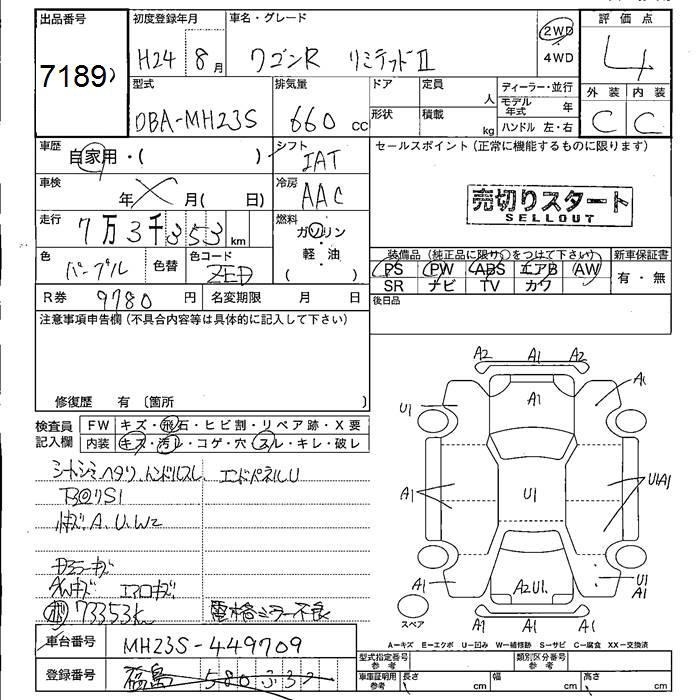 出品番号 初度登録年月 車名・グレード 評価点
7189 H24 8月 ワゴンR リミテッドⅡ 2WD 4WD 4
型式 排気量 ドア 定員 人 ディーラー・並行 外装 内装
DBA-MH23S 660cc 形状 積載 kg モデル年式 年 ハンドル 左・右 C C
車歴 自家用・( ) シフト IAT セールスポイント(正常に機能するものに限ります)
車検 年 月( 日) 冷房 AAC 売切りスタート
SELLOUT
走行 7万3千353km 燃料 ガソリン
軽・油
( )
色 パープル 色替 色コード ZED 装備品(純正品に限り○をつけて下さい) 新車保証書
PS PW ABS エアB AW 有・無
SR ナビ TV カワ
R券 9780円 名変期限 月 日 後日品
注意事項申告欄(不具合内容等は具体的に記入して下さい)
修復歴 有 〔箇所 〕
検査員記入欄 FW キズ・飛石・ヒビ割・リペア跡・X要
内装 キズ・汚レ・コゲ・穴・スレ・キレ・破レ
シートシミヘタリ、ハンドルスレ エンドパネルU
A、U、W2
ドアミラーキズ
AWキズ エアロキズ
73353k 電格ミラー不良
車台番号 MH23S-449709
登録番号 福島 580
A2 A1 A2
A1 A1
U1
A1 U1 U1A1
A1 A2U1 U1
A1
スペア A1 A1 A1
A=キズ E=エクボ U=凹み W=補修跡 S=サビ C=腐食 XX=交換済
型式指定番号参考 類別区分番号参考
車庫証明用参考 長さ cm 幅 cm 高さ cm